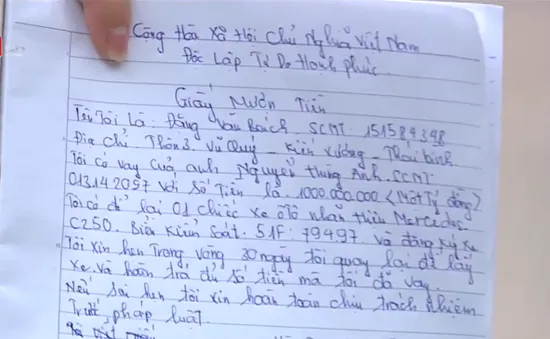 Cộng Hòa Xã Hội Chủ Nghĩa Việt Nam
Độc Lập Tự Do Hạnh phúc
Giấy Mượn Tiền
Tên Tôi Là: Đặng Văn Bách. SCMT 151584398
Địa chỉ Thôn 3. Vũ Quý - Kiến Xương - Thái bình
Tôi có vay của anh Nguyễn Hùng Anh. SCMT:
013142097 với số Tiền là 1000.000.000 <Một Tỷ đồng>
Tôi có để lại 01 chiếc xe ô tô nhãn hiệu Mercedes.
C250. Biển Kiểm Soát. 51F: 79497 và đăng ký xe
Tôi xin hẹn Trong vòng 30 ngày tôi quay lại để lấy
xe và hoàn trả đủ số tiền mà tôi đã vay.
Nếu sai hẹn tôi xin hoàn toàn chịu trách nhiệm
Trước pháp luật.